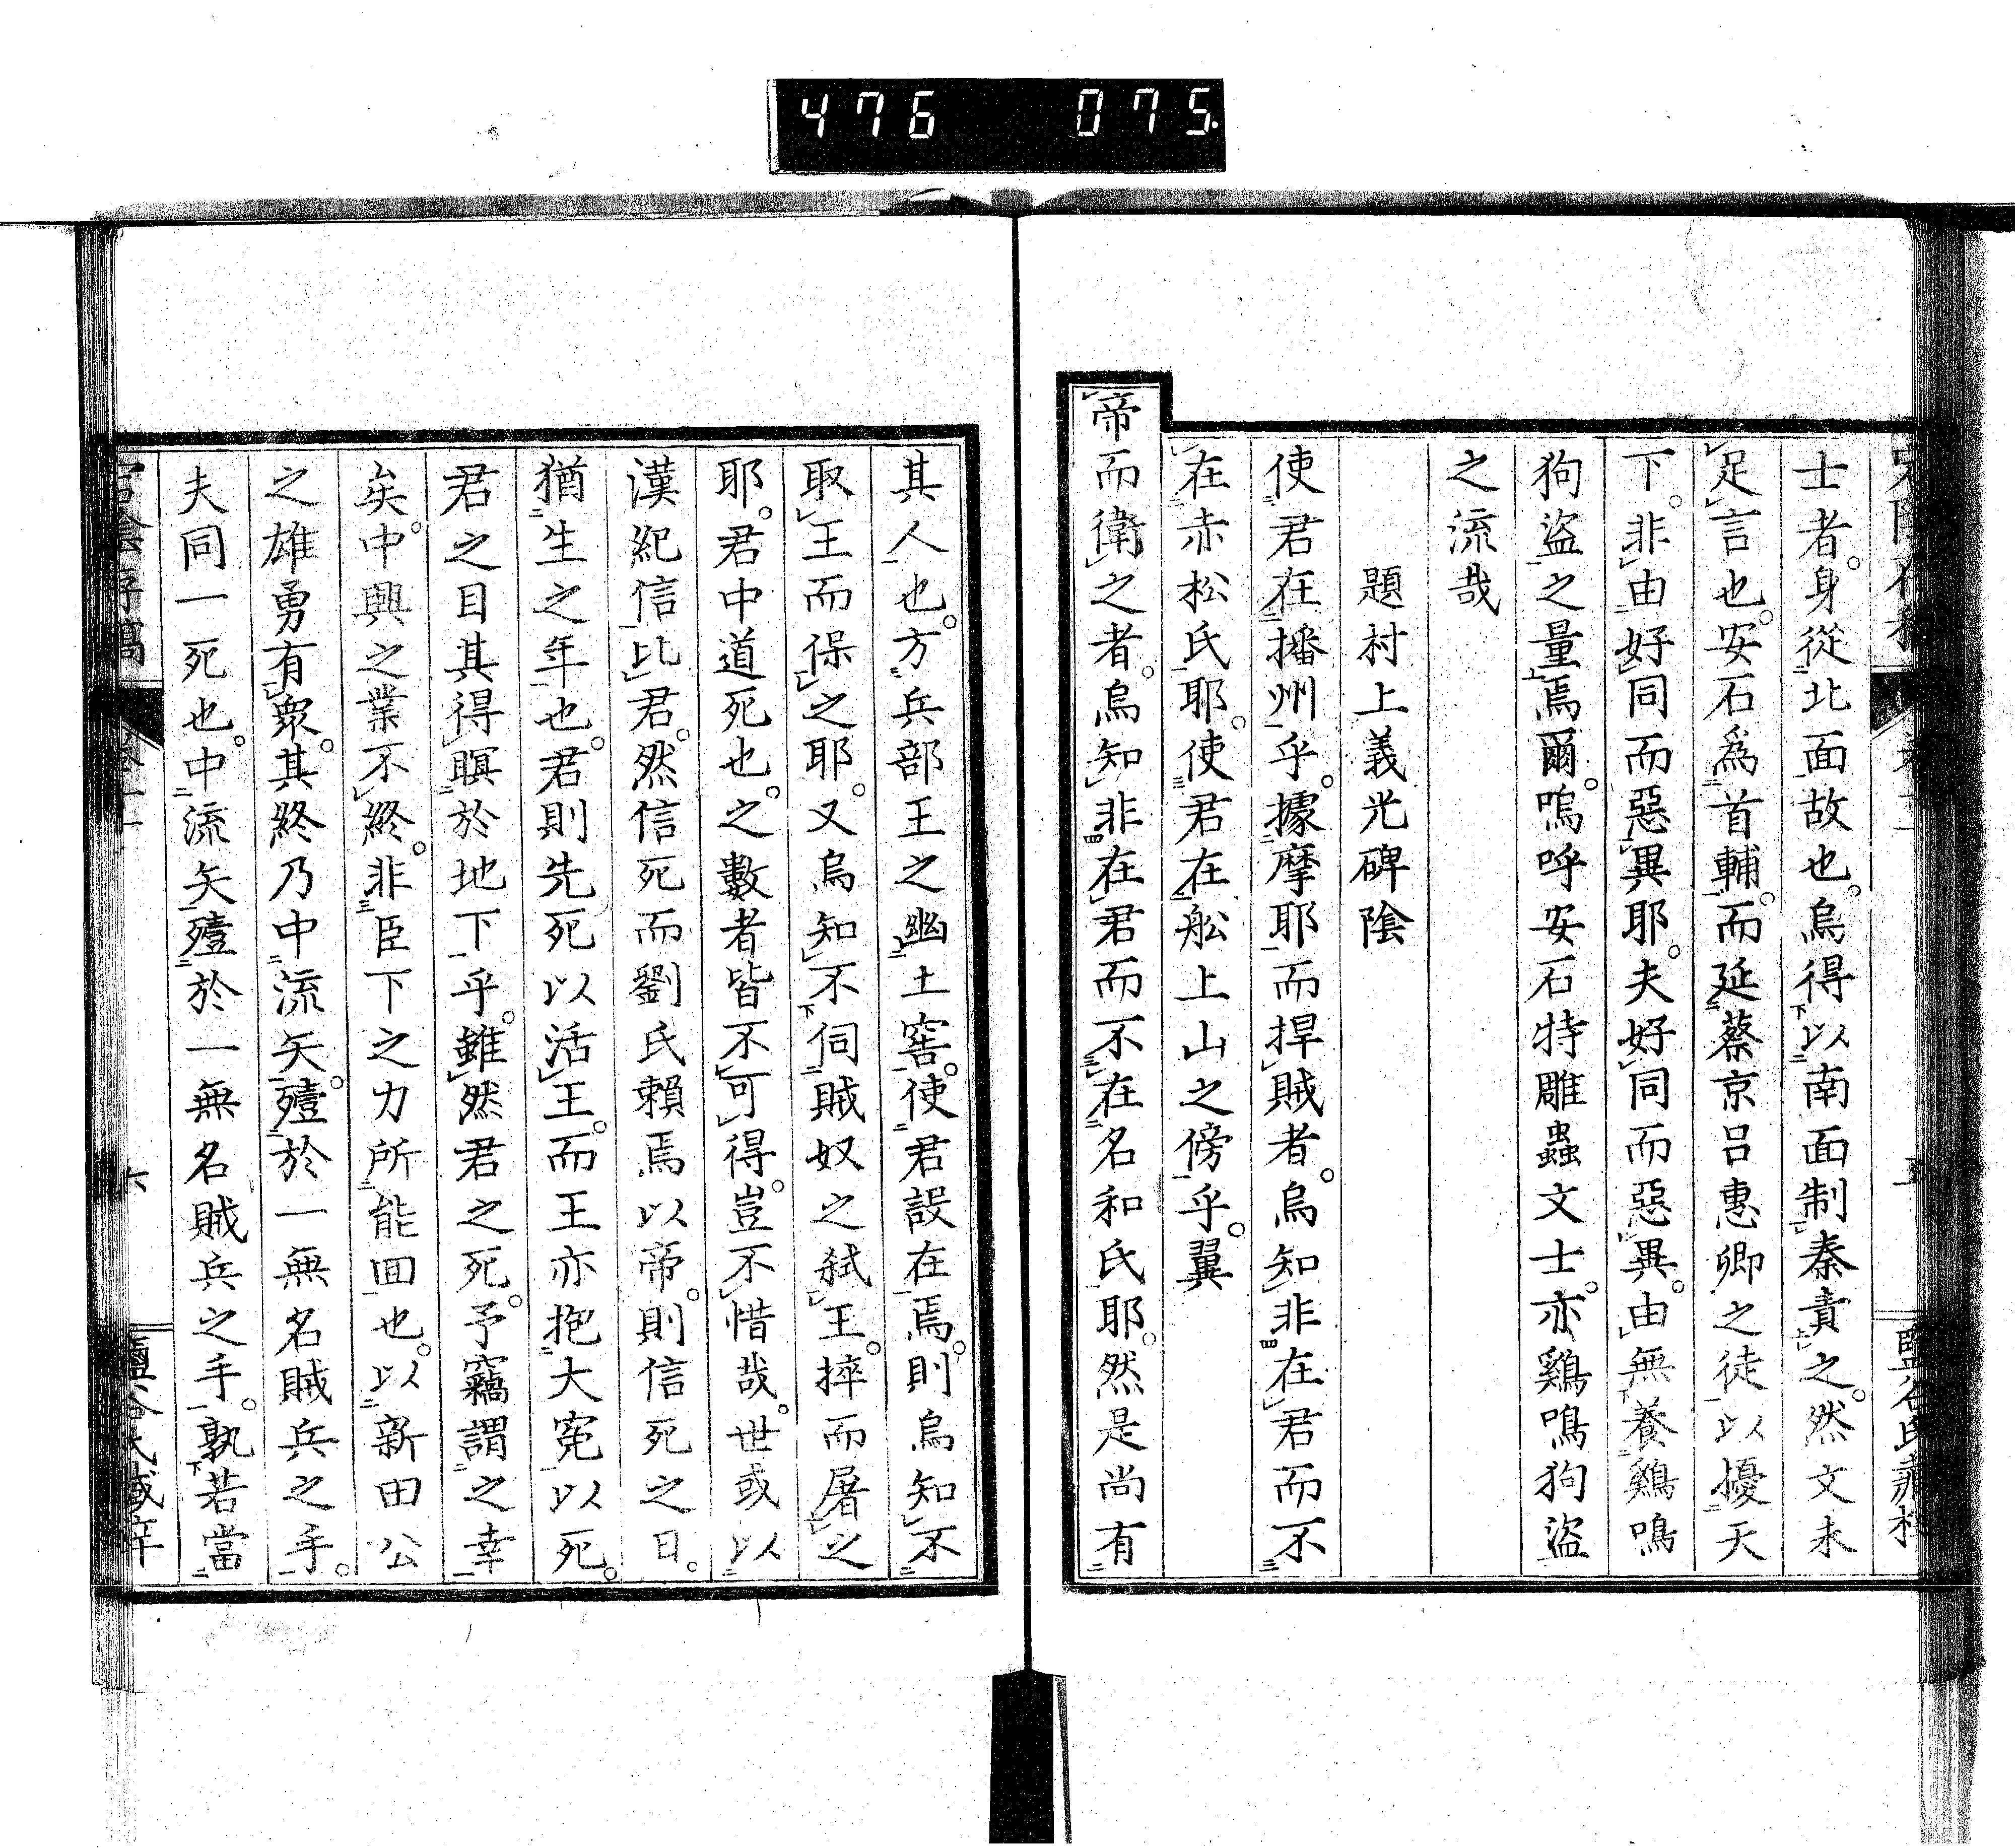 476 075
士者。身從北面故也。烏得以南面制秦責之。然文未
足言也。安石爲首輔。而延蔡京呂惠卿之徒以擾天
下。非由好同而惡異耶。夫好同而惡異。由無養鷄鳴
狗盜之量焉爾。嗚呼安石特雕蟲文士。亦鷄鳴狗盜
之流哉
題村上義光碑陰
使君在播州乎。據摩耶而捍賊者。烏知非在君而不
在赤松氏耶。使君在舩上山之傍乎。翼
帝而衛之者。烏知非在君而不在名和氏耶。然是尚有
其人也。方兵部王之幽土窖。使君設在焉。則烏知不
取王而保之耶。又烏知不伺賊奴之弑王。捽而屠之
耶。君中道死也。之數者皆不可得。豈不惜哉。世或以
漢紀信比君。然信死而劉氏賴焉以帝。則信死之日。
猶生之年也。君則先死以活王。而王亦抱大寃以死。
君之目其得瞑於地下乎。雖然君之死。予竊謂之幸
矣。中興之業不終。非臣下之力所能回也。以新田公
之雄勇有衆。其終乃中流矢。殪於一無名賊兵之手。
夫同一死也。中流矢殪於一無名賊兵之手。孰若當
六